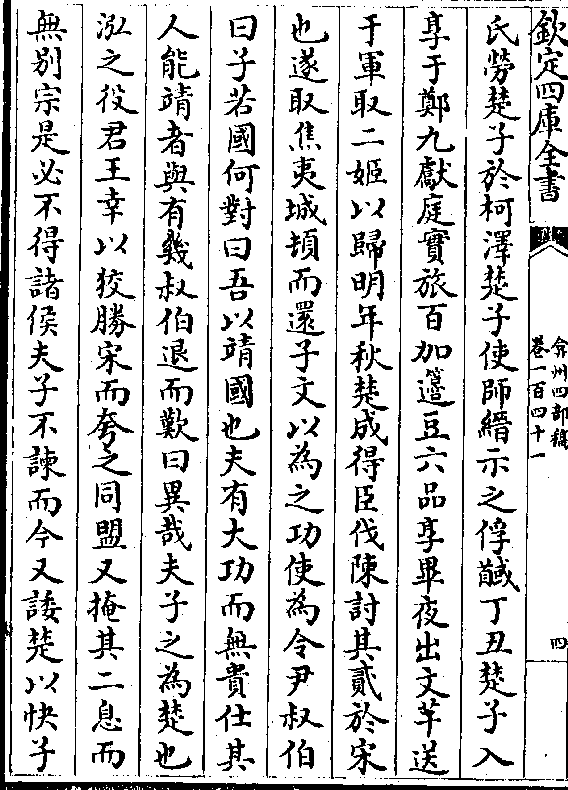 欽定四庫全書
弇州四部稿
卷一百四十一
四
氏勞楚子於柯澤楚子使師縉示之俘馘丁丑楚子入
享于鄭九獻庭實旅百加籩豆六品享畢夜出文芊送
于軍取二姬以歸明年秋楚成得臣伐陳討其貳於宋
也遂取焦夷城頓而還子文以為之功使為令尹叔伯
曰子若國何對曰吾以靖國也夫有大功而無貴仕其
人能靖者與有幾叔伯退而歎曰異哉夫子之為楚也
泓之役君王幸以狡勝宋而夸之同盟又掩其二息而
無别宗是必不得諸侯夫子不諫而今又諉楚以快子